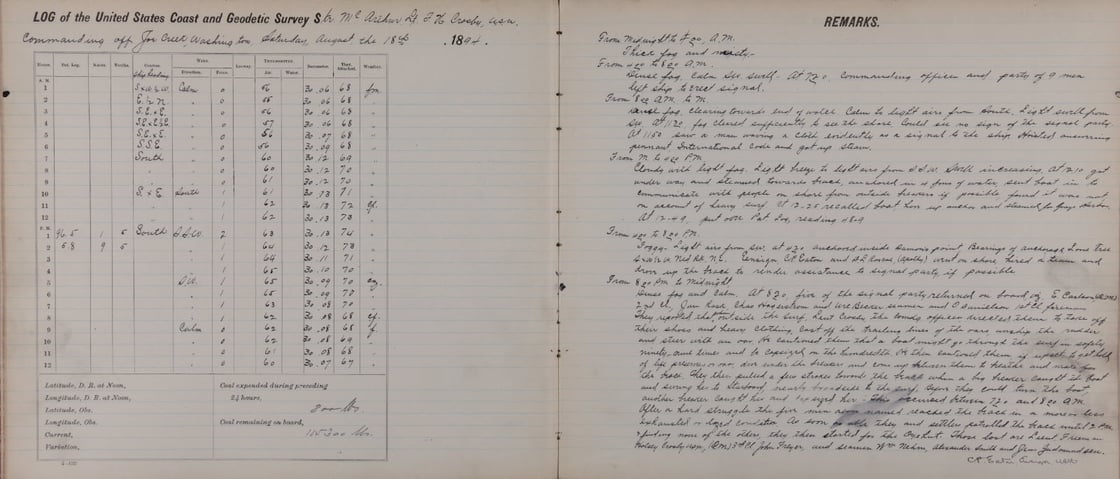 LOG of the United States Coast and Geodetic Survey Str. McArthur Lt. F. H. Crosby, USN.
Commanding off Joe Creek, Washington, Saturday, August the 18th, 1894.
REMARKS.
From Midnight to 4.00, A.M.
Thick fog and misty.
From 4.00 to 8.00 A.M.
Dense fog. Calm. SW. swell. At 7.20, Commanding officer and party of 9 men
left ship to erect signal.
From 8.00 A.M. to M.
Dense fog, clearing towards end of watch. Calm to light airs from South. Light swell from
SW. At 11.20 fog cleared sufficiently to see the shore. Could see no sign of the signal party.
At 11.50 saw a man waving a cloth evidently as a signal to the ship. Hoisted answering
pennant International Code and got up steam.
From M. to 4.00 P.M.
Cloudy with light fog. Light breeze to light airs from SSW. Swell increasing. At 12.10 got
under way and steamed towards beach, anchored in fms of water, sent boat in to
communicate with people on shore from outside breakers if possible, found it was not
on account of heavy surf. At 12-25 recalled boat hove up anchor and steamed for Grays Harbor.
At 12-49, put over Pat Log, reading 48.9
From 4.00 to 8.00 P.M.
Foggy. Light airs from SW. At 4.20 anchored inside point. Bearings of anchorage Lone tree
Ensign C.P. Eaton and went on shore, hired a team and
drove up the beach to render assistance to signal party if possible
From 8.00 P.M. to Midnight.
Dense fog and Calm. At 8.30, five of the signal party returned on board, viz. E. Carlson
seaman and O. Danielson
They reported that outside the surf, Lieut Crosby the Comdg officer directed them to take off
their shoes and heavy clothing, cast off the trailing lines of the oars, unship the rudder
and steer with an oar. He cautioned them that a boat might go through the surf in safety
ninety-nine times and be capsized on the hundredth. He then cautioned them if upset to get hold
of life preserver or oar, dive under the breakers and come up between them to breathe and make for
the beach. They then pulled a few strokes toward the beach when a big breaker caught the boat
and swung her to starboard, nearly broadside to the surf. Before they could turn the boat
another breaker caught her and capsized her. This occurred between 7.20 and 8.00 A.M.
After a hard struggle the five men above named reached the beach in a more or less
exhausted or dazed condition. As soon as able they and settlers patrolled the beach until 2 P.M.
finding none of the other, they then started for the Those lost are Lieut Freeman
Horsey Crosby USN, John Freyer, and seamen Wm Nehm, Alexander Smith and Jens Gudmundsen.
C.P. Eaton, Ensign USN
Pat. Log. Knots. Tenths. Courses. Ship Heading WIND. Direction. Force. Leeway. THERMOMETER. Air. Water. Barometer. Ther. Attached. Weather.
A. M.
1 Calm 0 56 30.06 68
2 0 55 30.06 68
3 0 56 30.06 68
4 0 57 30.06 68
5 0 56 30.07 68
6 S.S.E. 0 56 30.09 68
7 South 0 60 30.12 69
8 0 60 30.12 70
9 0 61 30.12 70
10 South 1 61 30.13 71
11 1 62 30.13 72
12 1 62 30.13 73
P. M.
1 96.5 1 5 South S.S.W. 2 63 30.13 74
2 5.8 9 5 1 64 30.12 73
3 1 64 30.11 71
4 1 65 30.10 70
5 S.W. 1 65 30.09 70
6 1 65 30.09 70
7 1 63 30.08 70
8 1 62 30.08 68
9 Calm 0 62 30.08 68 f.
10 0 62 30.08 69
11 0 61 30.08 68
12 0 60 30.07 67
Latitude, D. R. at Noon,
Longitude, D. R. at Noon,
Latitude, Obs.
Longitude, Obs.
Current,
Variation,
Coal expended during preceding
24 hours,
800 lbs.
Coal remaining on board,